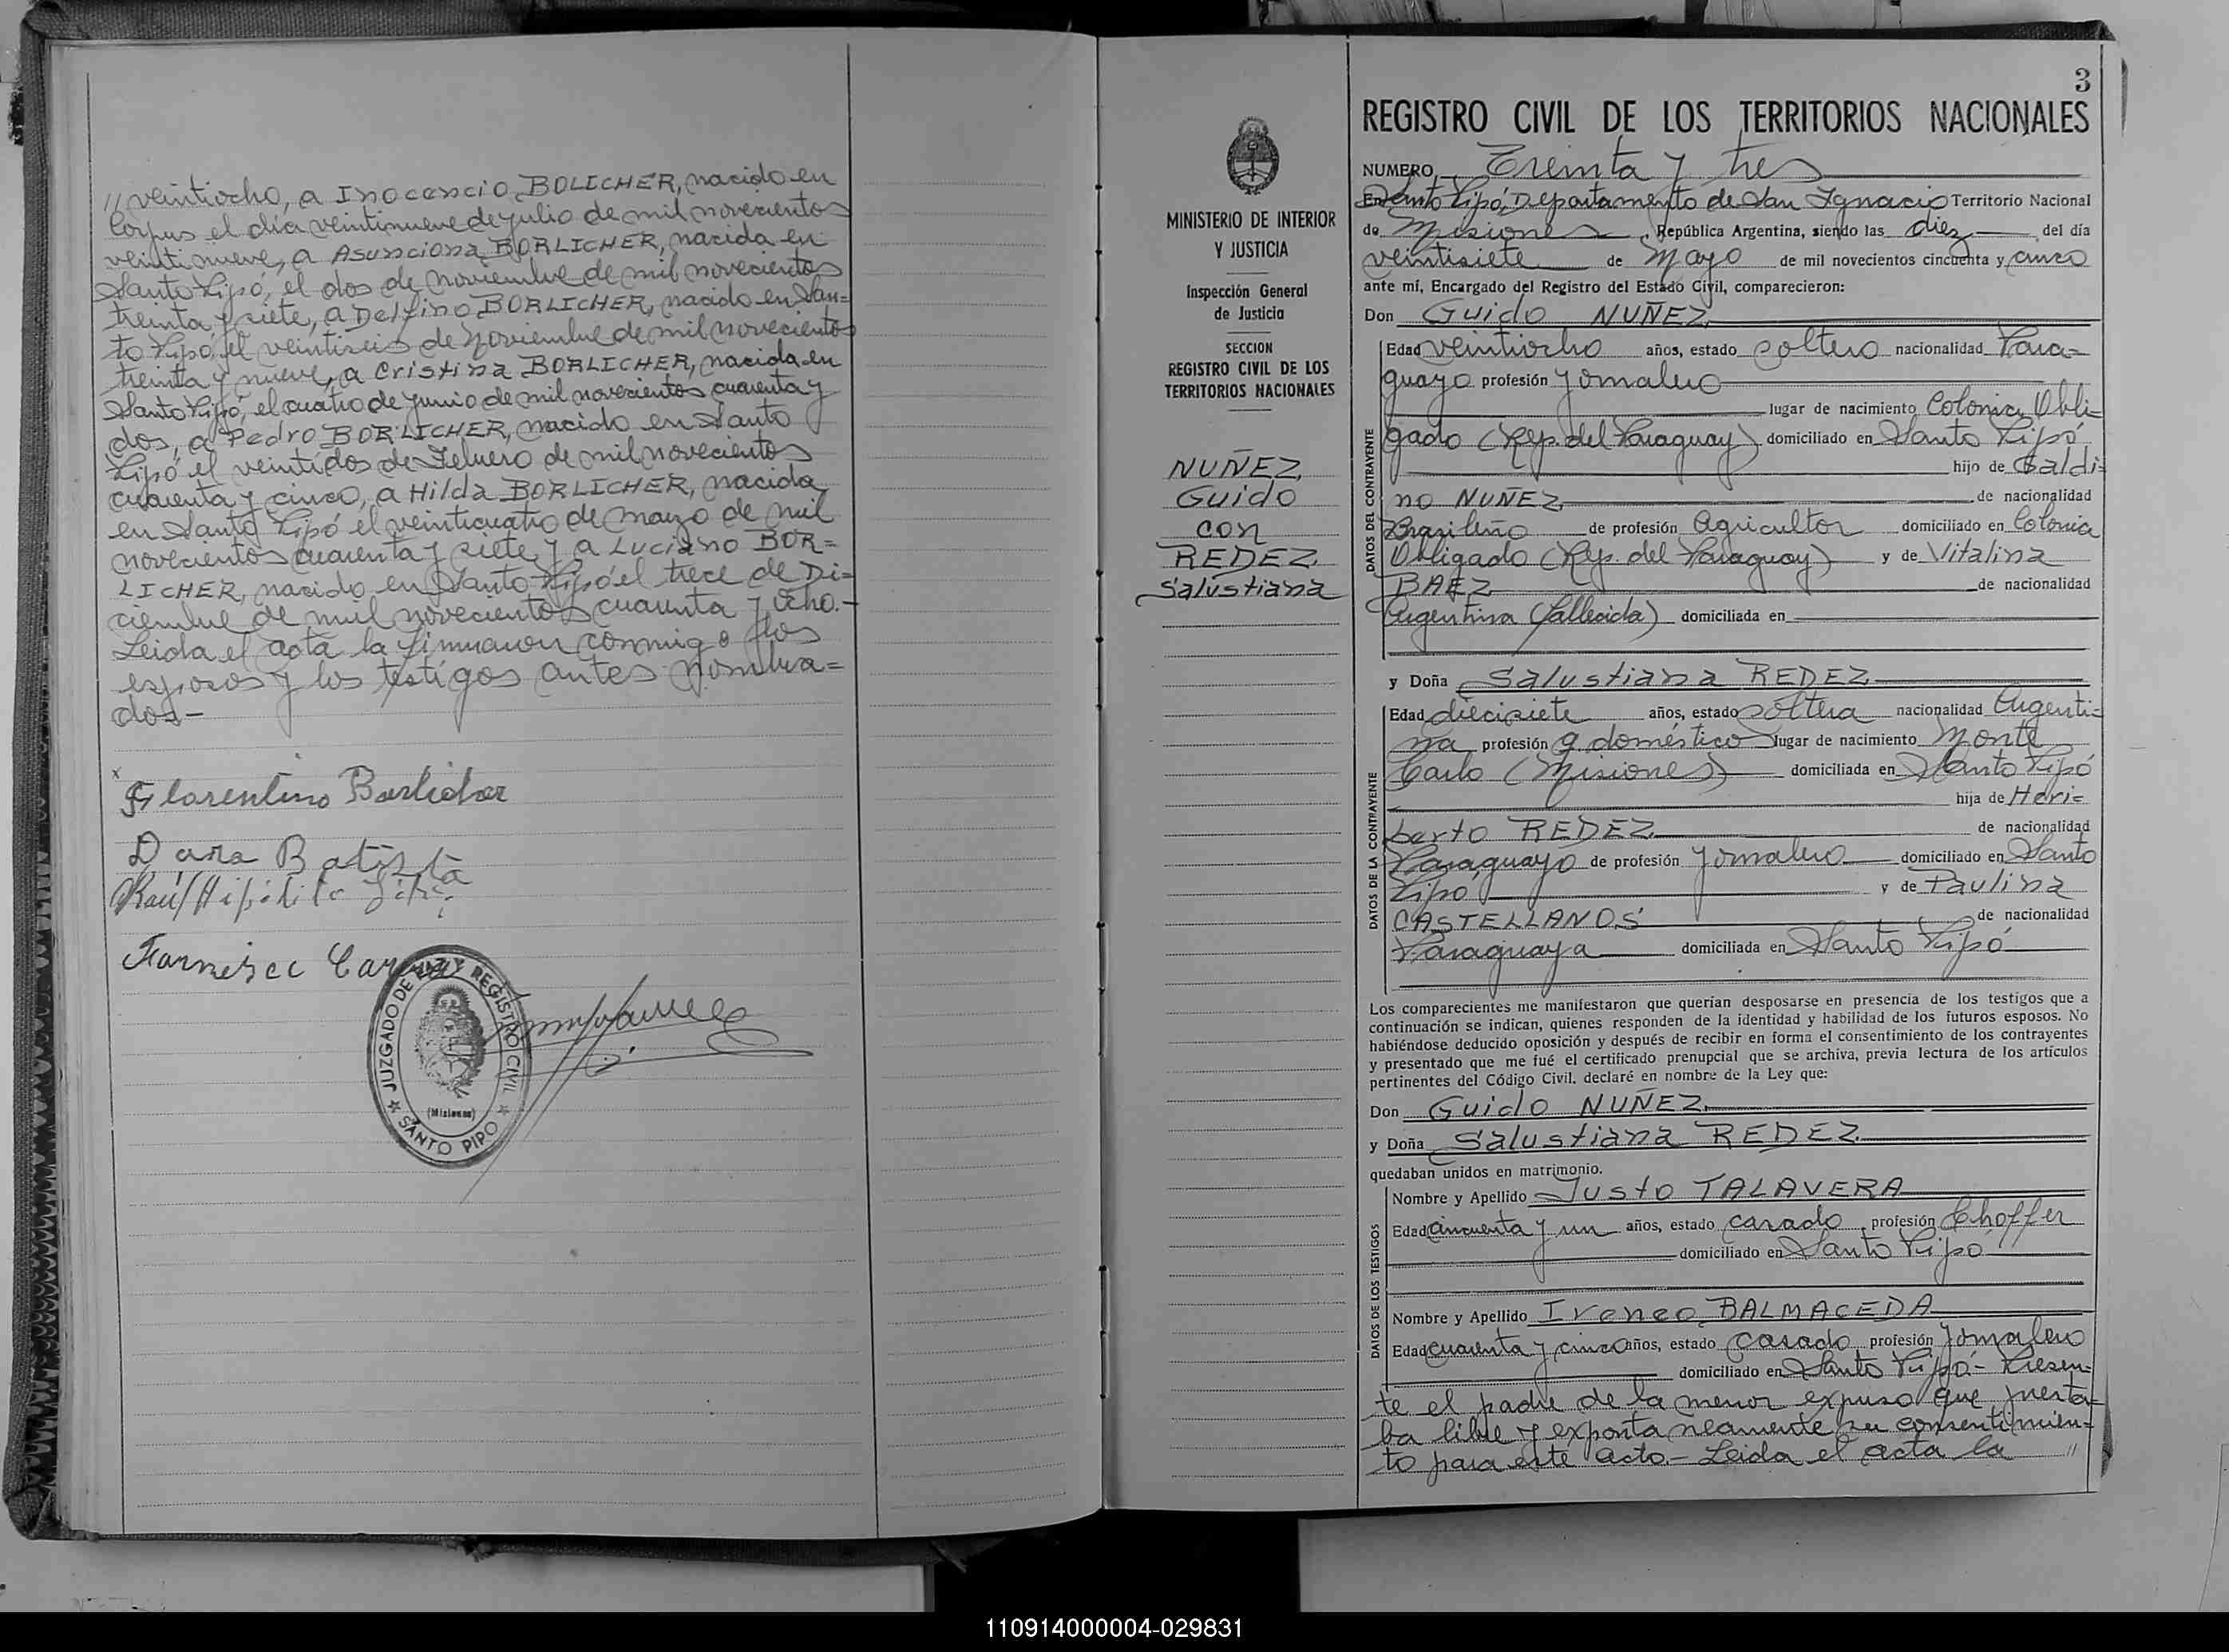 // veintiocho, a Inocencio BOLICHER, nacido en
Corpus el día veintinueve de julio de mil novecientos
veintinueve, a Asunciona BORLICHER, nacida en
Santo Pipó, el dos de noviembre de mil novecientos
treinta y siete, a Delfino BORLICHER, nacido en San=
to Pipó, el veintiseis de Noviembre de mil novecientos
treinta y nueve, a Cristina BORLICHER, nacida en
Santo Pipó, el cuatro de junio de mil novecientos cuarenta y
dos, a Pedro BORLICHER, nacido en Santo
Pipó el veintidos de Febrero de mil novecientos
cuarenta y cinco, a Hilda BORLICHER, nacida
en Santo Pipó el veinticuatro de marzo de mil
novecientos cuarenta y siete y a Luciano BOR=
LICHER, nacido en Santo Pipó el trece de Di=
ciembre de mil novecientos cuarenta y ocho.-
Leida el acta la firmaron conmigo los
esposos y los testigos antes nombra=
dos-
x
Florentino Borlicher
Dara Batista
Raúl Hipólito
JUZGADO DE PAZ Y REGISTRO CIVIL
(Misiones)
SANTO PIPO
MINISTERIO DE INTERIOR
Y JUSTICIA
Inspección General
de Justicia
SECCION
REGISTRO CIVIL DE LOS
TERRITORIOS NACIONALES
NUÑEZ,
Guido
con
REDEZ,
Salustiana
3
REGISTRO CIVIL DE LOS TERRITORIOS NACIONALES
NUMERO Treinta y tres
En Santo Pipó, Departamento de San Ignacio Territorio Nacional
de Misiones, República Argentina, siendo las diez del día
veintisiete de Mayo de mil novecientos cincuenta y cinco
ante mí, Encargado del Registro del Estado Civil, comparecieron:
Don Guido NUÑEZ
DATOS DEL CONTRAYENTE
Edad veintiocho años, estado soltero nacionalidad Para=
guayo profesión jornalero
lugar de nacimiento Colonia Obli=
gado (Rep. del Paraguay) domiciliado en Santo Pipó
hijo de Galdi=
no NUÑEZ de nacionalidad
Brasileño de profesión Agricultor domiciliado en Colonia
Obligado (Rep. del Paraguay) y de Vitalina
BAEZ de nacionalidad
Argentina (fallecida) domiciliada en
y Doña Salustiana REDEZ
DATOS DE LA CONTRAYENTE
Edad diecisiete años, estado soltera nacionalidad Argenti=
na profesión q. doméstico lugar de nacimiento Monte
Carlo (Misiones) domiciliada en Santo Pipó
hija de Heri=
berto REDEZ de nacionalidad
Paraguayo de profesión jornalero domiciliado en Santo
Pipó y de Paulina
CASTELLANOS de nacionalidad
Paraguaya domiciliada en Santo Pipó
Los comparecientes me manifestaron que querían desposarse en presencia de los testigos que a
continuación se indican, quienes responden de la identidad y habilidad de los futuros esposos. No
habiéndose deducido oposición y después de recibir en forma el consentimiento de los contrayentes
y presentado que me fué el certificado prenupcial que se archiva, previa lectura de los artículos
pertinentes del Código Civil. declaré en nombre de la Ley que:
Don Guido NUÑEZ
y Doña Salustiana REDEZ
quedaban unidos en matrimonio.
DATOS DE LOS TESTIGOS
Nombre y Apellido Justo TALAVERA
Edad cincuenta y un años, estado casado profesión Choffer
domiciliado en Santo Pipó
Nombre y Apellido Ireneo BALMACEDA
Edad cuarenta y cinco años, estado casado profesión jornalero
domiciliado en Santo Pipó.- Presen=
te el padre de la menor expuso que presta=
ba libre y expontaneamente su consentimien=
to para este acto.- Leida el acta la //
110914000004-029831